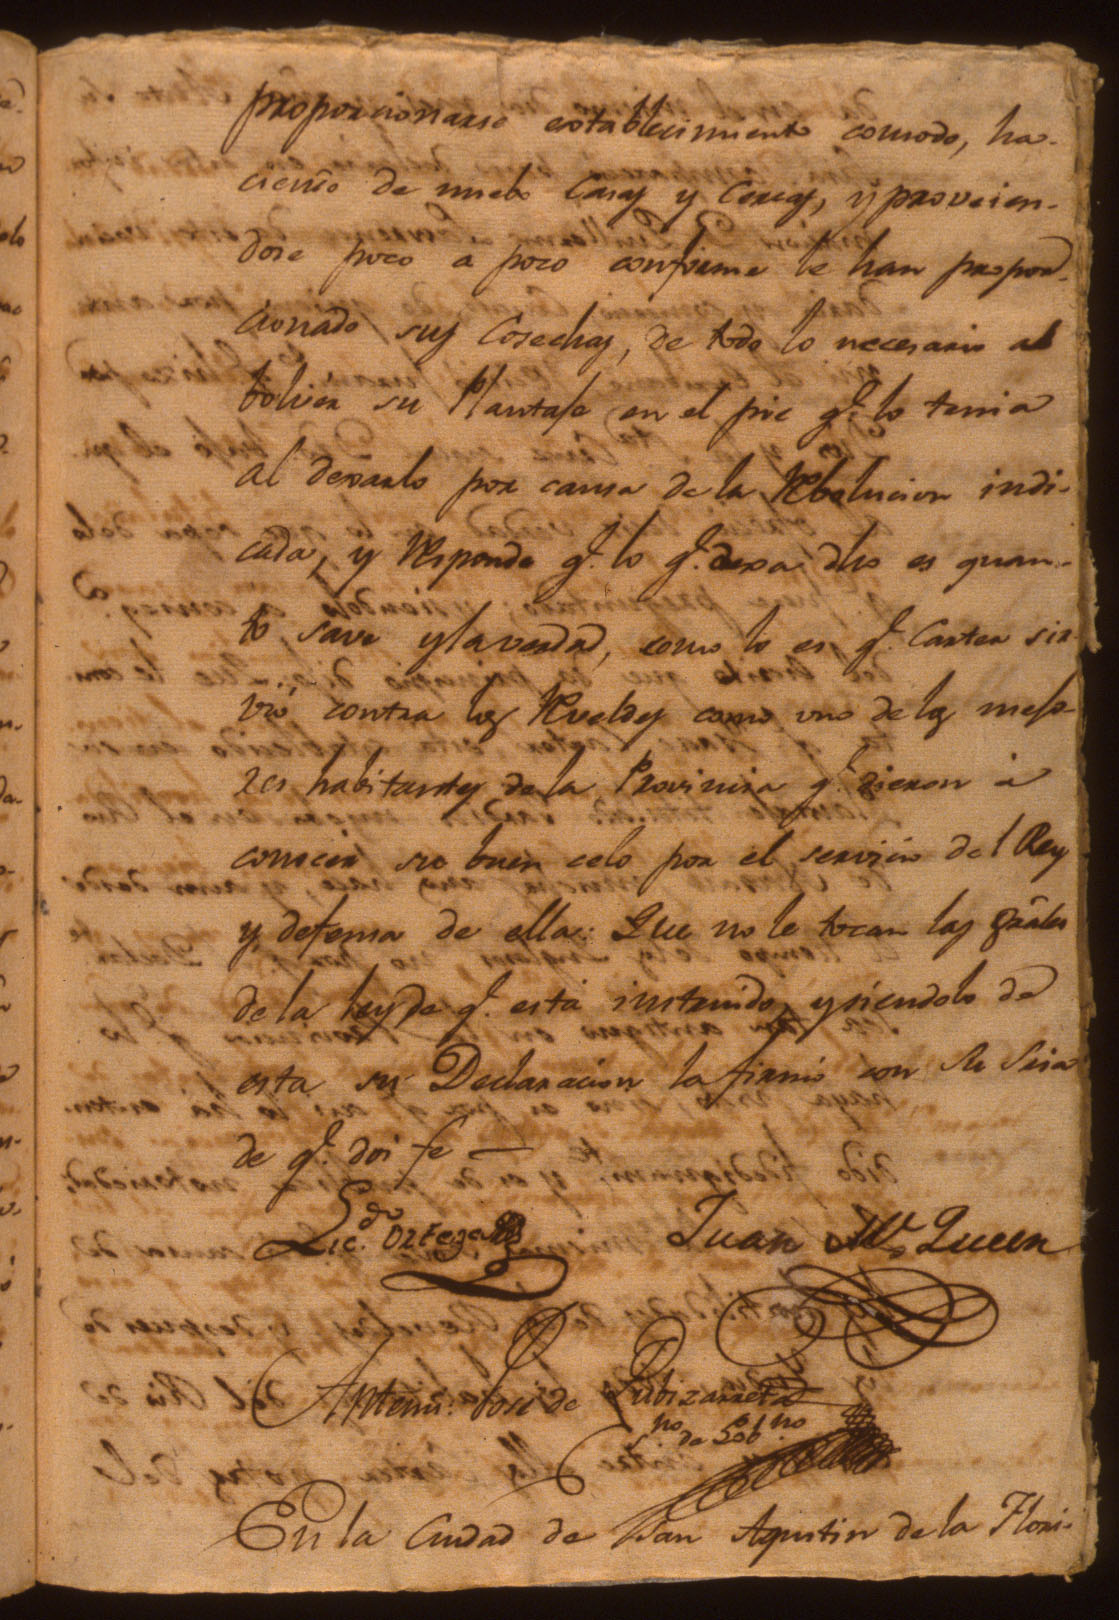 proporcionarse establecimiento comodo, ha-
ciendo de nuebo Casas y Cercas, y proveien-
dose poco a poco conforme le han propor-
cionado sus Cosechas, de todo lo necesario al
bolver su Plantaje en el pie qe. lo tenia
al dexarlo por causa de la Rebolucion indi-
cada, y Responde qe. lo qe. dexa dho es quan-
to save y la verdad, como lo es qe. Carter sir-
vió contra los Rveldes como uno de los mejo-
res habitantes de la Provincia qe. dieron à
conocer su buen celo por el servicio del Rey
y defensa de ella: Que no le tocan las grãles
de la Ley de qe. está instruido, y siendolo de
esta su Declaracion la firmó con Su Sria
de qe. doi fe —
Licdo. Ortega
Juan Mc. Queen
Antemi. Jose de Zubizarreta
Sno. de Gobno.
En la Ciudad de San Agustin de la Flori-